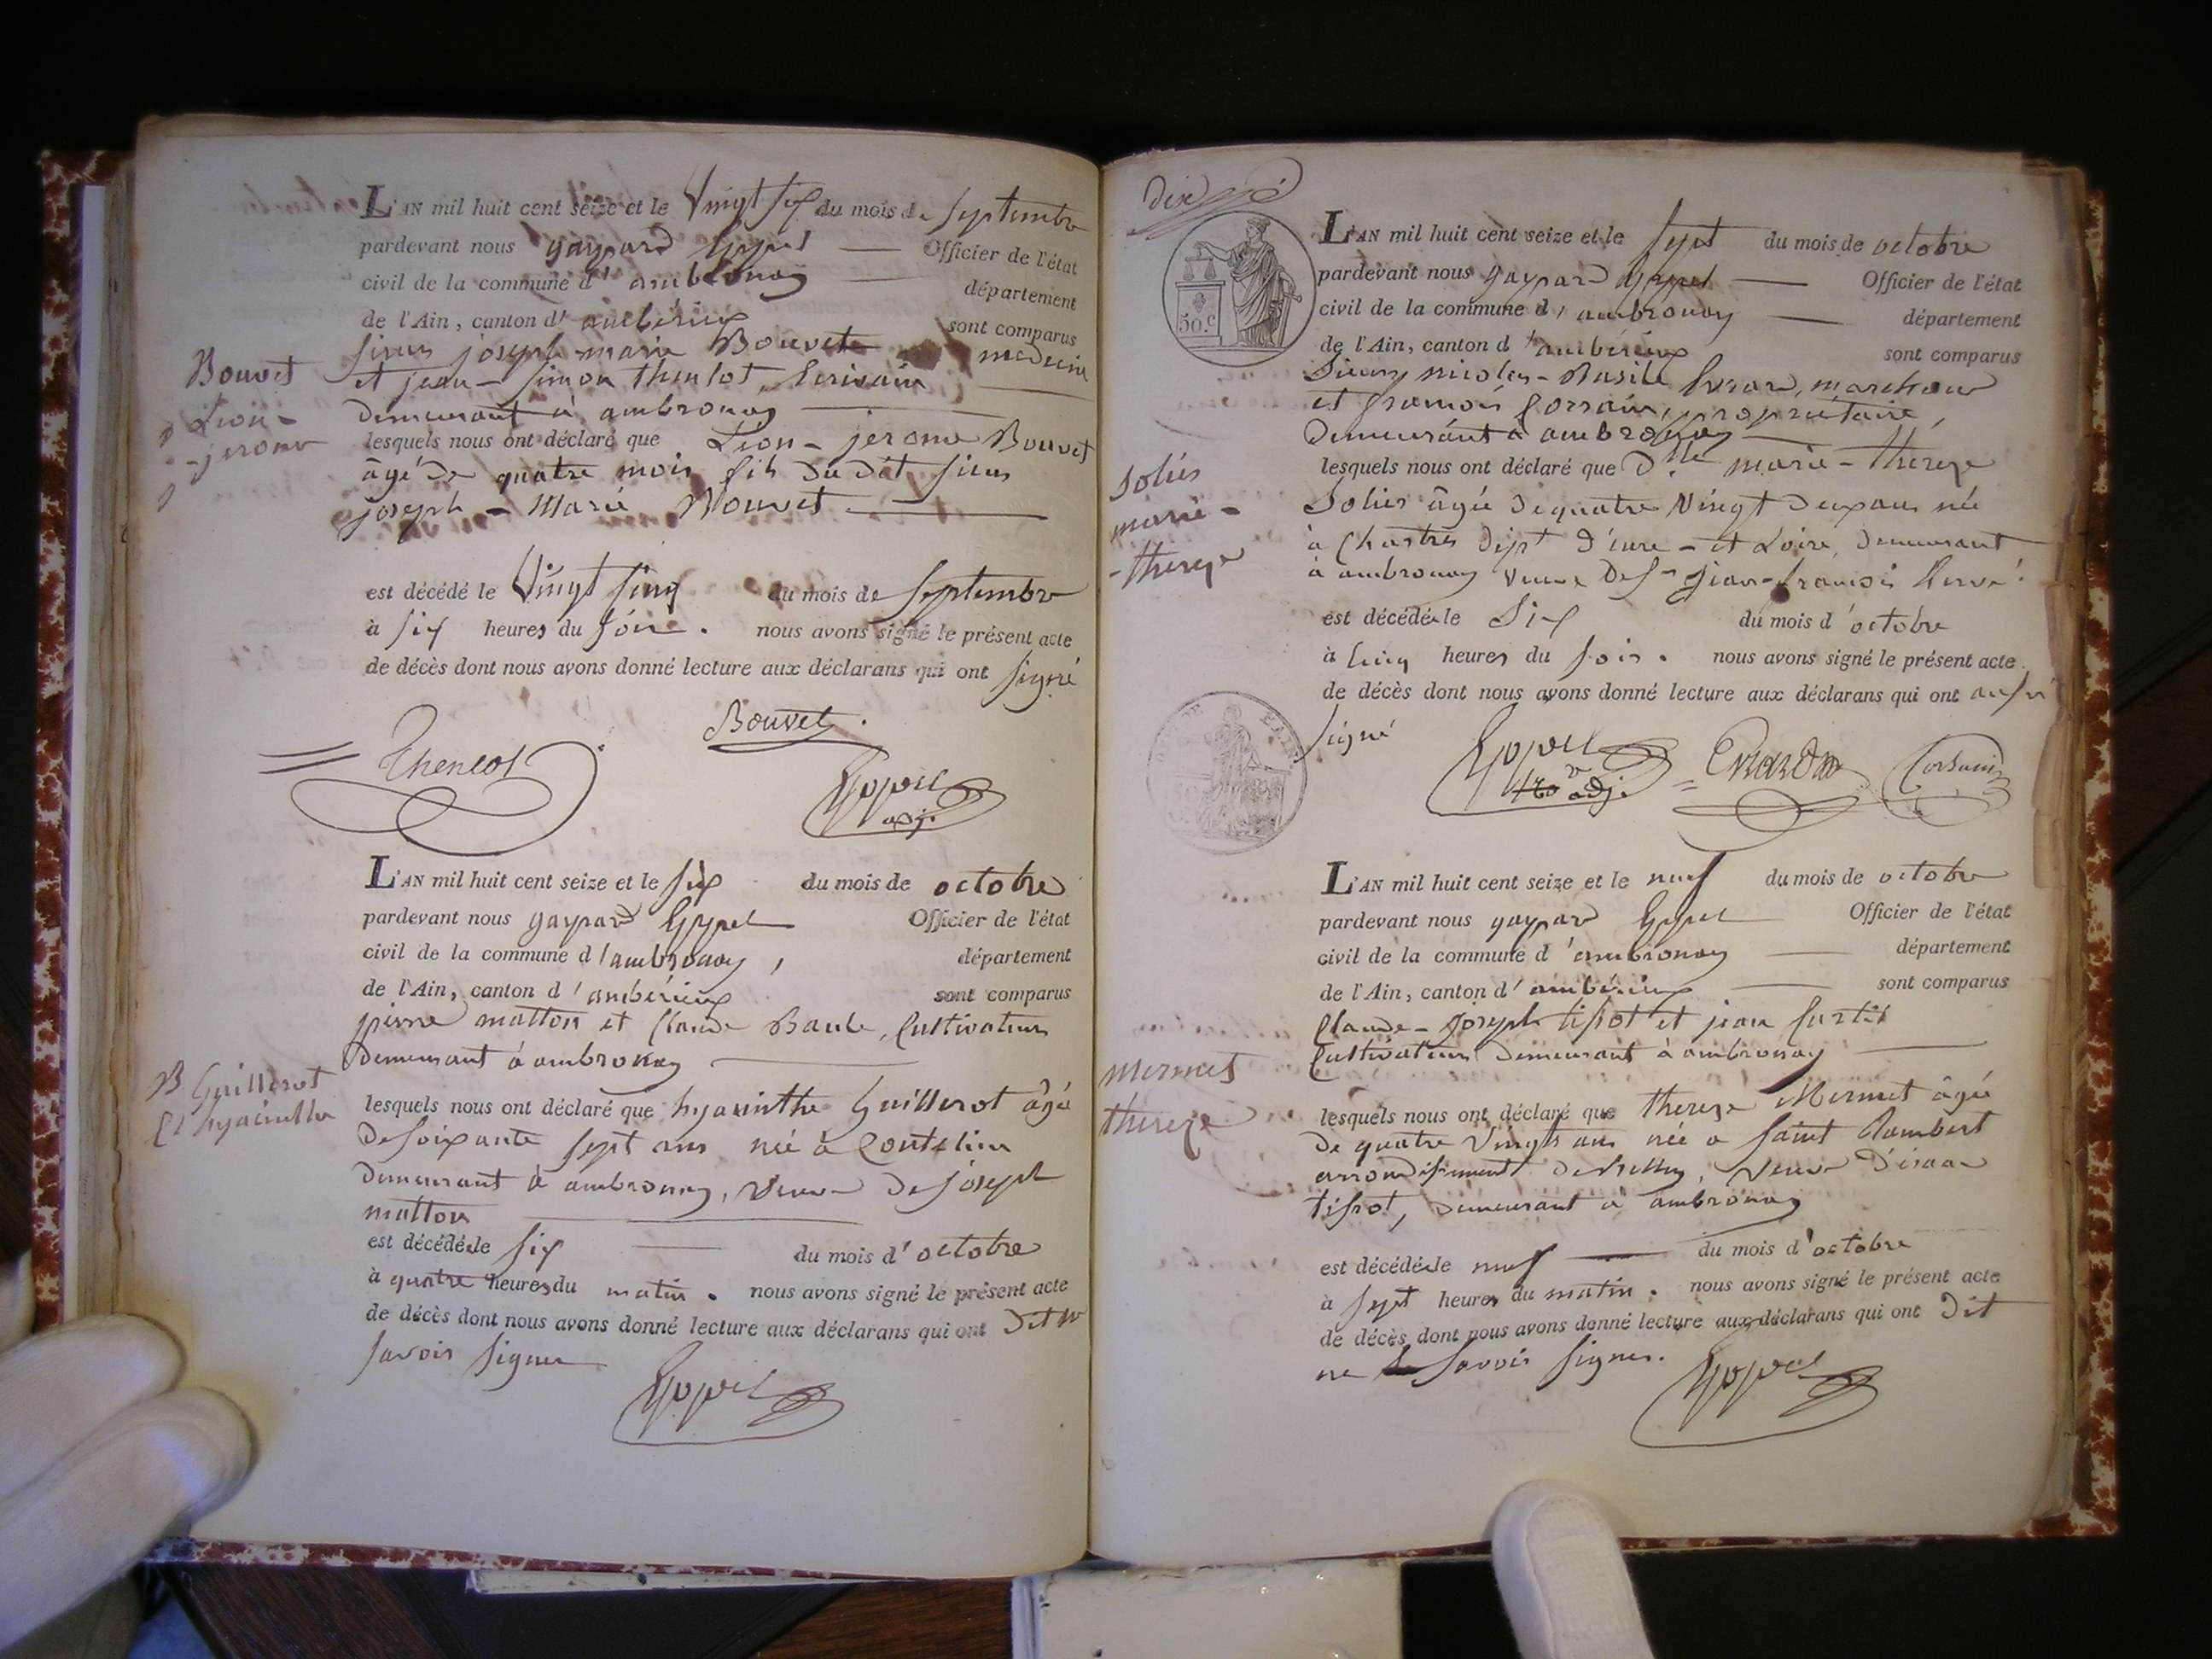 L'AN mil huit cent seize et le Vingt six du mois de septembre
pardevant nous gaspard Goppel — Officier de l'état
civil de la commune d'ambronay — département
de l'Ain, canton d'ambérieux sont comparus
sieurs joseph marie Bouvet medecin
et jean-simon thenlot, Ecrivain
demeurant à ambronay
Bouvet
Léon-
-jerome
lesquels nous ont déclaré que Léon-jerome Bouvet
âgé de quatre mois fils du dit sieur
joseph-Marie Bouvet
est décédé le Vingt Cinq du mois de septembre
à six heures du soir. nous avons signé le présent acte
de décès dont nous avons donné lecture aux déclarans qui ont signé
Bouvet
adj.
L'AN mil huit cent seize et le six du mois de octobre
pardevant nous gaspard Officier de l'état
civil de la commune d'ambronay, département
de l'Ain, canton d'ambérieux sont comparus
pierre matton et Claude Baule, Cultivateurs
demeurant à ambronay
Guillerot
hyacinthe
lesquels nous ont déclaré que hyacinthe Guillerot âgée
de soixante sept ans née à
demeurant à ambronay, veuve de joseph
matton
est décédée le six du mois d'octobre
à quatre heures du matin. nous avons signé le présent acte
de décès dont nous avons donné lecture aux déclarans qui ont dit ne
savoir signer
dix
50.c
L'AN mil huit cent seize et le sept du mois de octobre
pardevant nous gaspard — Officier de l'état
civil de la commune d'ambronay — département
de l'Ain, canton d'ambérieux sont comparus
Sieurs nicolas-Basile Evrard, marchand
et françois Corsain, propriétaire,
demeurant à ambronay
Soliés
marie-
-thereze
lesquels nous ont déclaré que Dlle marie-thereze
Soliés âgée de quatre Vingt deux ans née
à Chartres dépt d'eure-et Loire, demeurant
à ambronay veuve de Sr jean-françois hervé
est décédée le Six du mois d'octobre
à Cinq heures du soir. nous avons signé le présent acte
de décès dont nous avons donné lecture aux déclarans qui ont aussi
signé
adj.
Evrard
L'AN mil huit cent seize et le neuf du mois de octobre
pardevant nous gaspard Officier de l'état
civil de la commune d'ambronay — département
de l'Ain, canton d'ambérieux — sont comparus
Claude-Joseph tissot et jean
Cultivateurs demeurant à ambronay
Mermet
thereze
lesquels nous ont déclaré que thereze Mermet âgée
de quatre Vingts ans née a saint Rambert
arrondissement de Belley, veuve d'isaac
tissot, demeurant à ambronay
est décédée le neuf — du mois d'octobre
à sept heures du matin. nous avons signé le présent acte
de décès dont nous avons donné lecture aux déclarans qui ont dit
ne savoir signer.